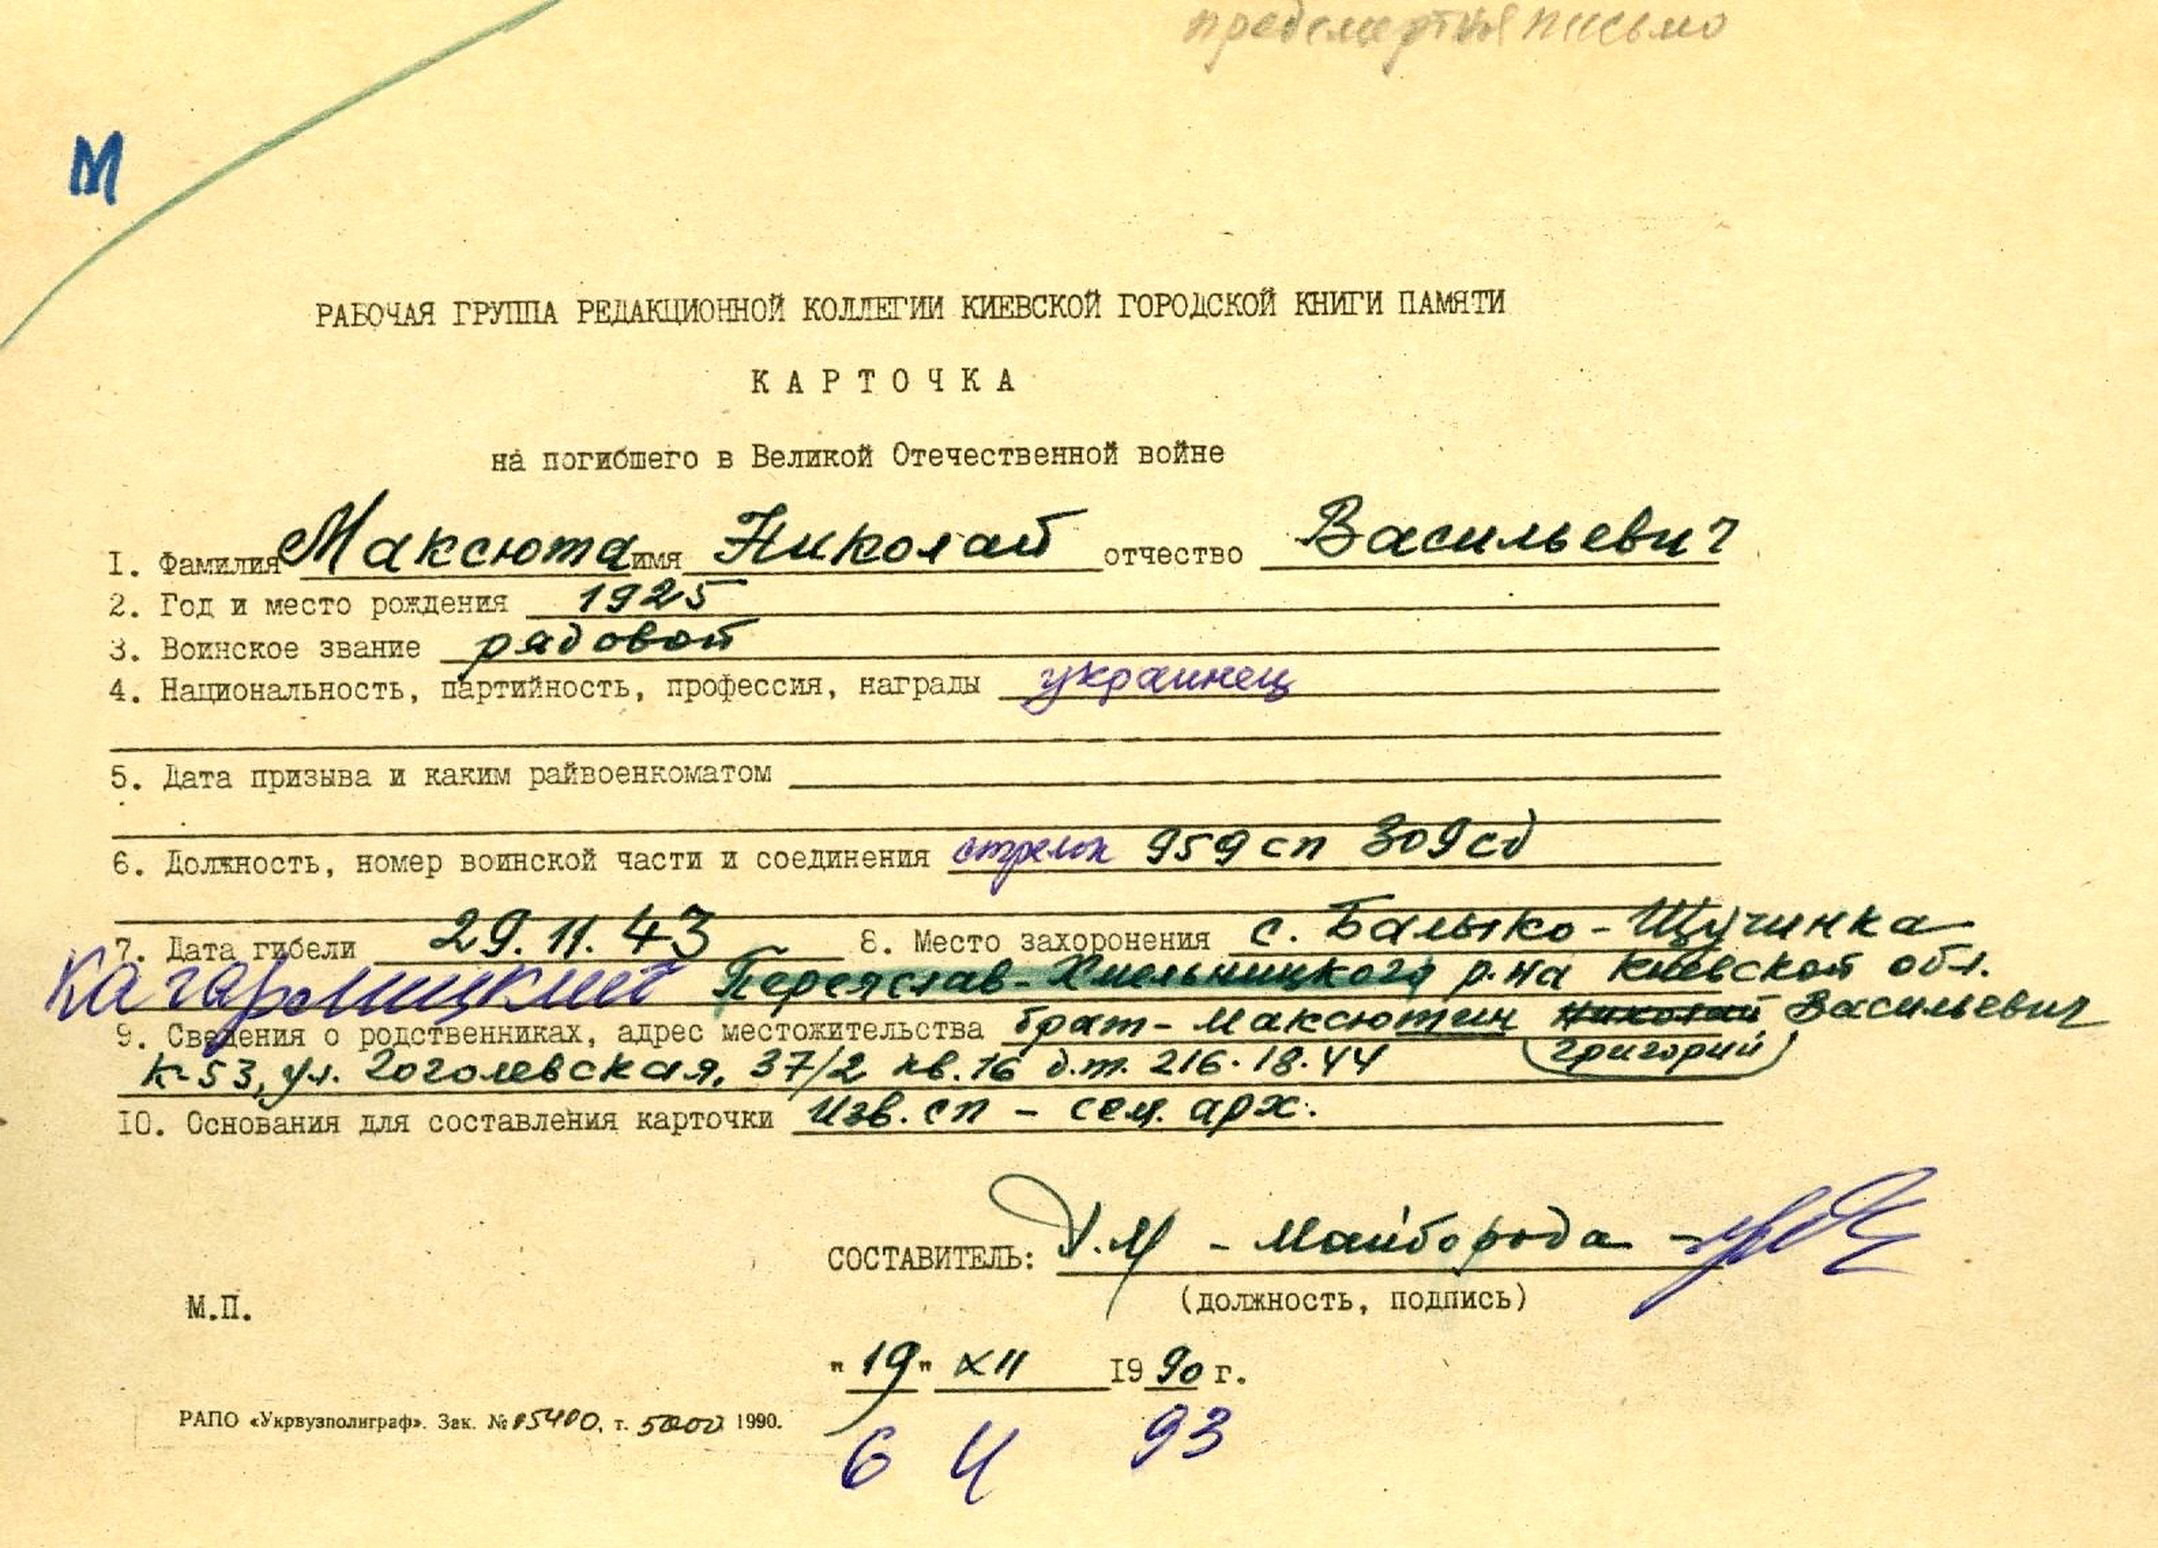 предсмертная письмо
М
РАБОЧАЯ ГРУППА РЕДАКЦИОННОЙ КОЛЛЕГИИ КИЕВСКОЙ ГОРОДСКОЙ КНИГИ ПАМЯТИ
КАРТОЧКА
на погибшего в Великой Отечественной войне
1. Фамилия Максюта имя Николай отчество Васильевич
2. Год и место рождения 1925
3. Воинское звание рядовой
4. Национальность, партийность, профессия, награды украинец
5. Дата призыва и каким райвоенкоматом
6. Должность, номер воинской части и соединения стрелок 959 сп 309 сд
7. Дата гибели 29.11.43 8. Место захоронения с. Балыко-Щучинка
Кагарлицкий Переяслав-Хмельницкого р-на Киевской обл.
9. Сведения о родственниках, адрес местожительства брат - Максютин Николай Васильевич
(Григорий)
К-53, ул. Гоголевская, 37/2 кв. 16 д.т. 216-18-44
10. Основания для составления карточки Изв. сп - сем. арх.
СОСТАВИТЕЛЬ: - Майборода -
(должность, подпись)
М.П.
"19" XII 1990 г.
РАПО «Укрвузполиграф». Зак. № 05400, т. 5000 1990.
6 4 93